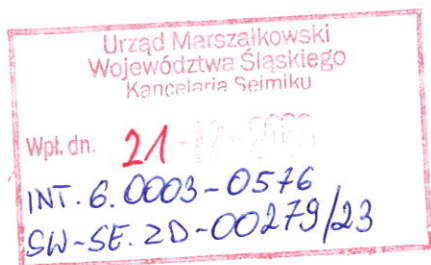 Urząd Marszałkowski
Województwa Śląskiego
Kancelaria Sejmiku
Wpł. dn. 21
INT. 6.0003-0576
SW-SE. ZD-00279/23